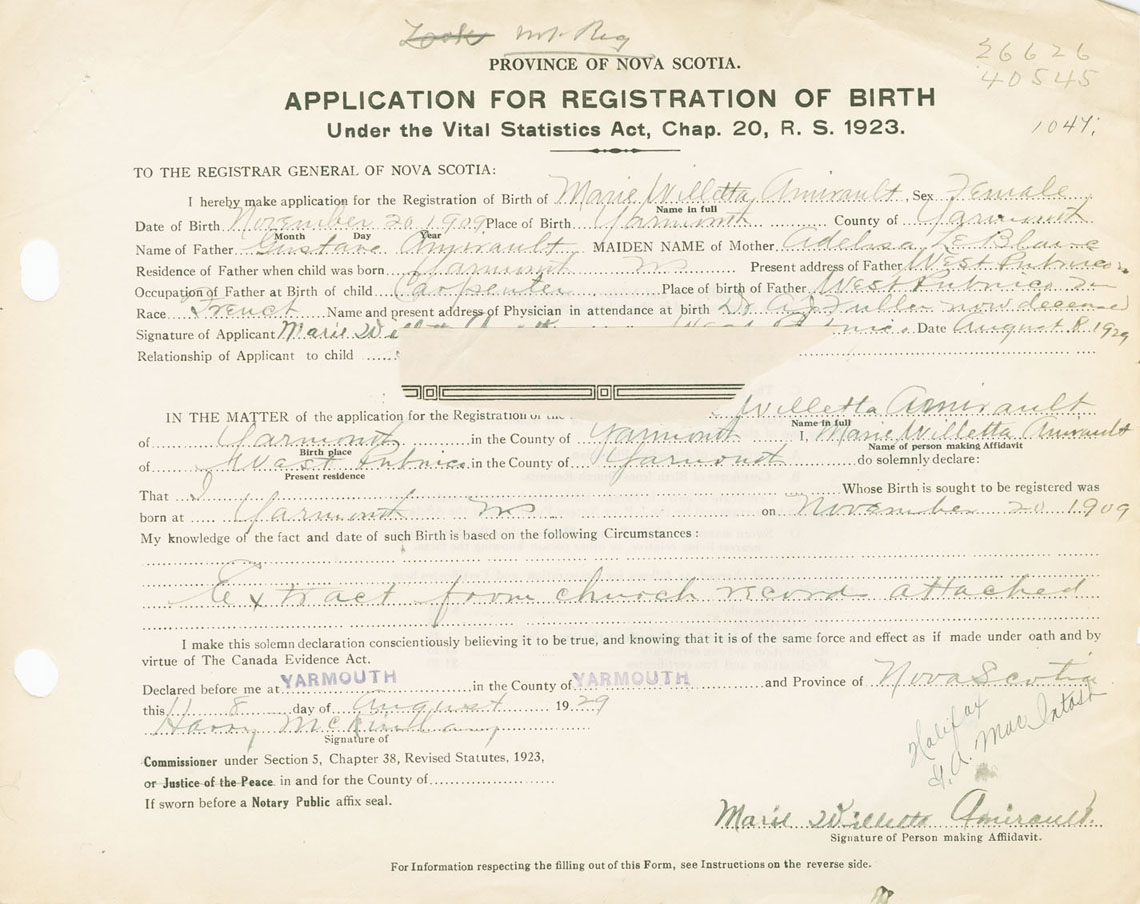 Look Not Reg
26626
PROVINCE OF NOVA SCOTIA.
40545
APPLICATION FOR REGISTRATION OF BIRTH
Under the Vital Statistics Act, Chap. 20, R. S. 1923.
1047.
TO THE REGISTRAR GENERAL OF NOVA SCOTIA:
I hereby make application for the Registration of Birth of Marie Willetta Amirault, Sex Female
Name in full
Date of Birth November 20 1909 Place of Birth Yarmouth County of Yarmouth
Month Day Year
Name of Father Gustave Amirault, MAIDEN NAME of Mother Adelisa LeBlanc
Residence of Father when child was born Yarmouth NS Present address of Father West Pubnico
Occupation of Father at Birth of child Carpenter Place of birth of Father West Pubnico
Race French Name and present address of Physician in attendance at birth Dr A J Fuller now deceased
Signature of Applicant Marie Date August 8 1929
Relationship of Applicant to child
IN THE MATTER of the application for the Registration of the Willetta Amirault
Name in full
of Yarmouth in the County of Yarmouth I, Marie Willetta Amirault
Birth place Name of person making Affidavit
of West Pubnico in the County of Yarmouth do solemnly declare:
Present residence
That I Whose Birth is sought to be registered was
born at Yarmouth NS on November 20 1909
My knowledge of the fact and date of such Birth is based on the following Circumstances:
Extract from church records attached
I make this solemn declaration conscientiously believing it to be true, and knowing that it is of the same force and effect as if made under oath and by
virtue of The Canada Evidence Act.
Declared before me at YARMOUTH in the County of YARMOUTH and Province of Nova Scotia
this 8 day of August 1929
Harry
Signature of
Halifax
Commissioner under Section 5, Chapter 38, Revised Statutes, 1923,
MacIntosh
or Justice of the Peace in and for the County of
If sworn before a Notary Public affix seal.
Marie Willetta Amirault.
Signature of Person making Affiidavit.
For Information respecting the filling out of this Form, see Instructions on the reverse side.